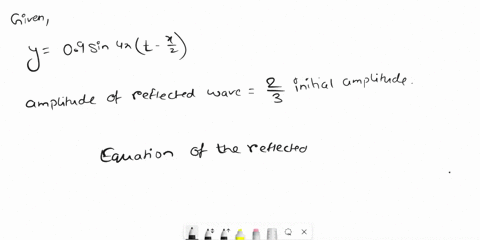 Given,
y = 0.9 sin 4π (t - x/2)
amplitude of reflected wave = 2/3 initial amplitude.
Equation of the reflected